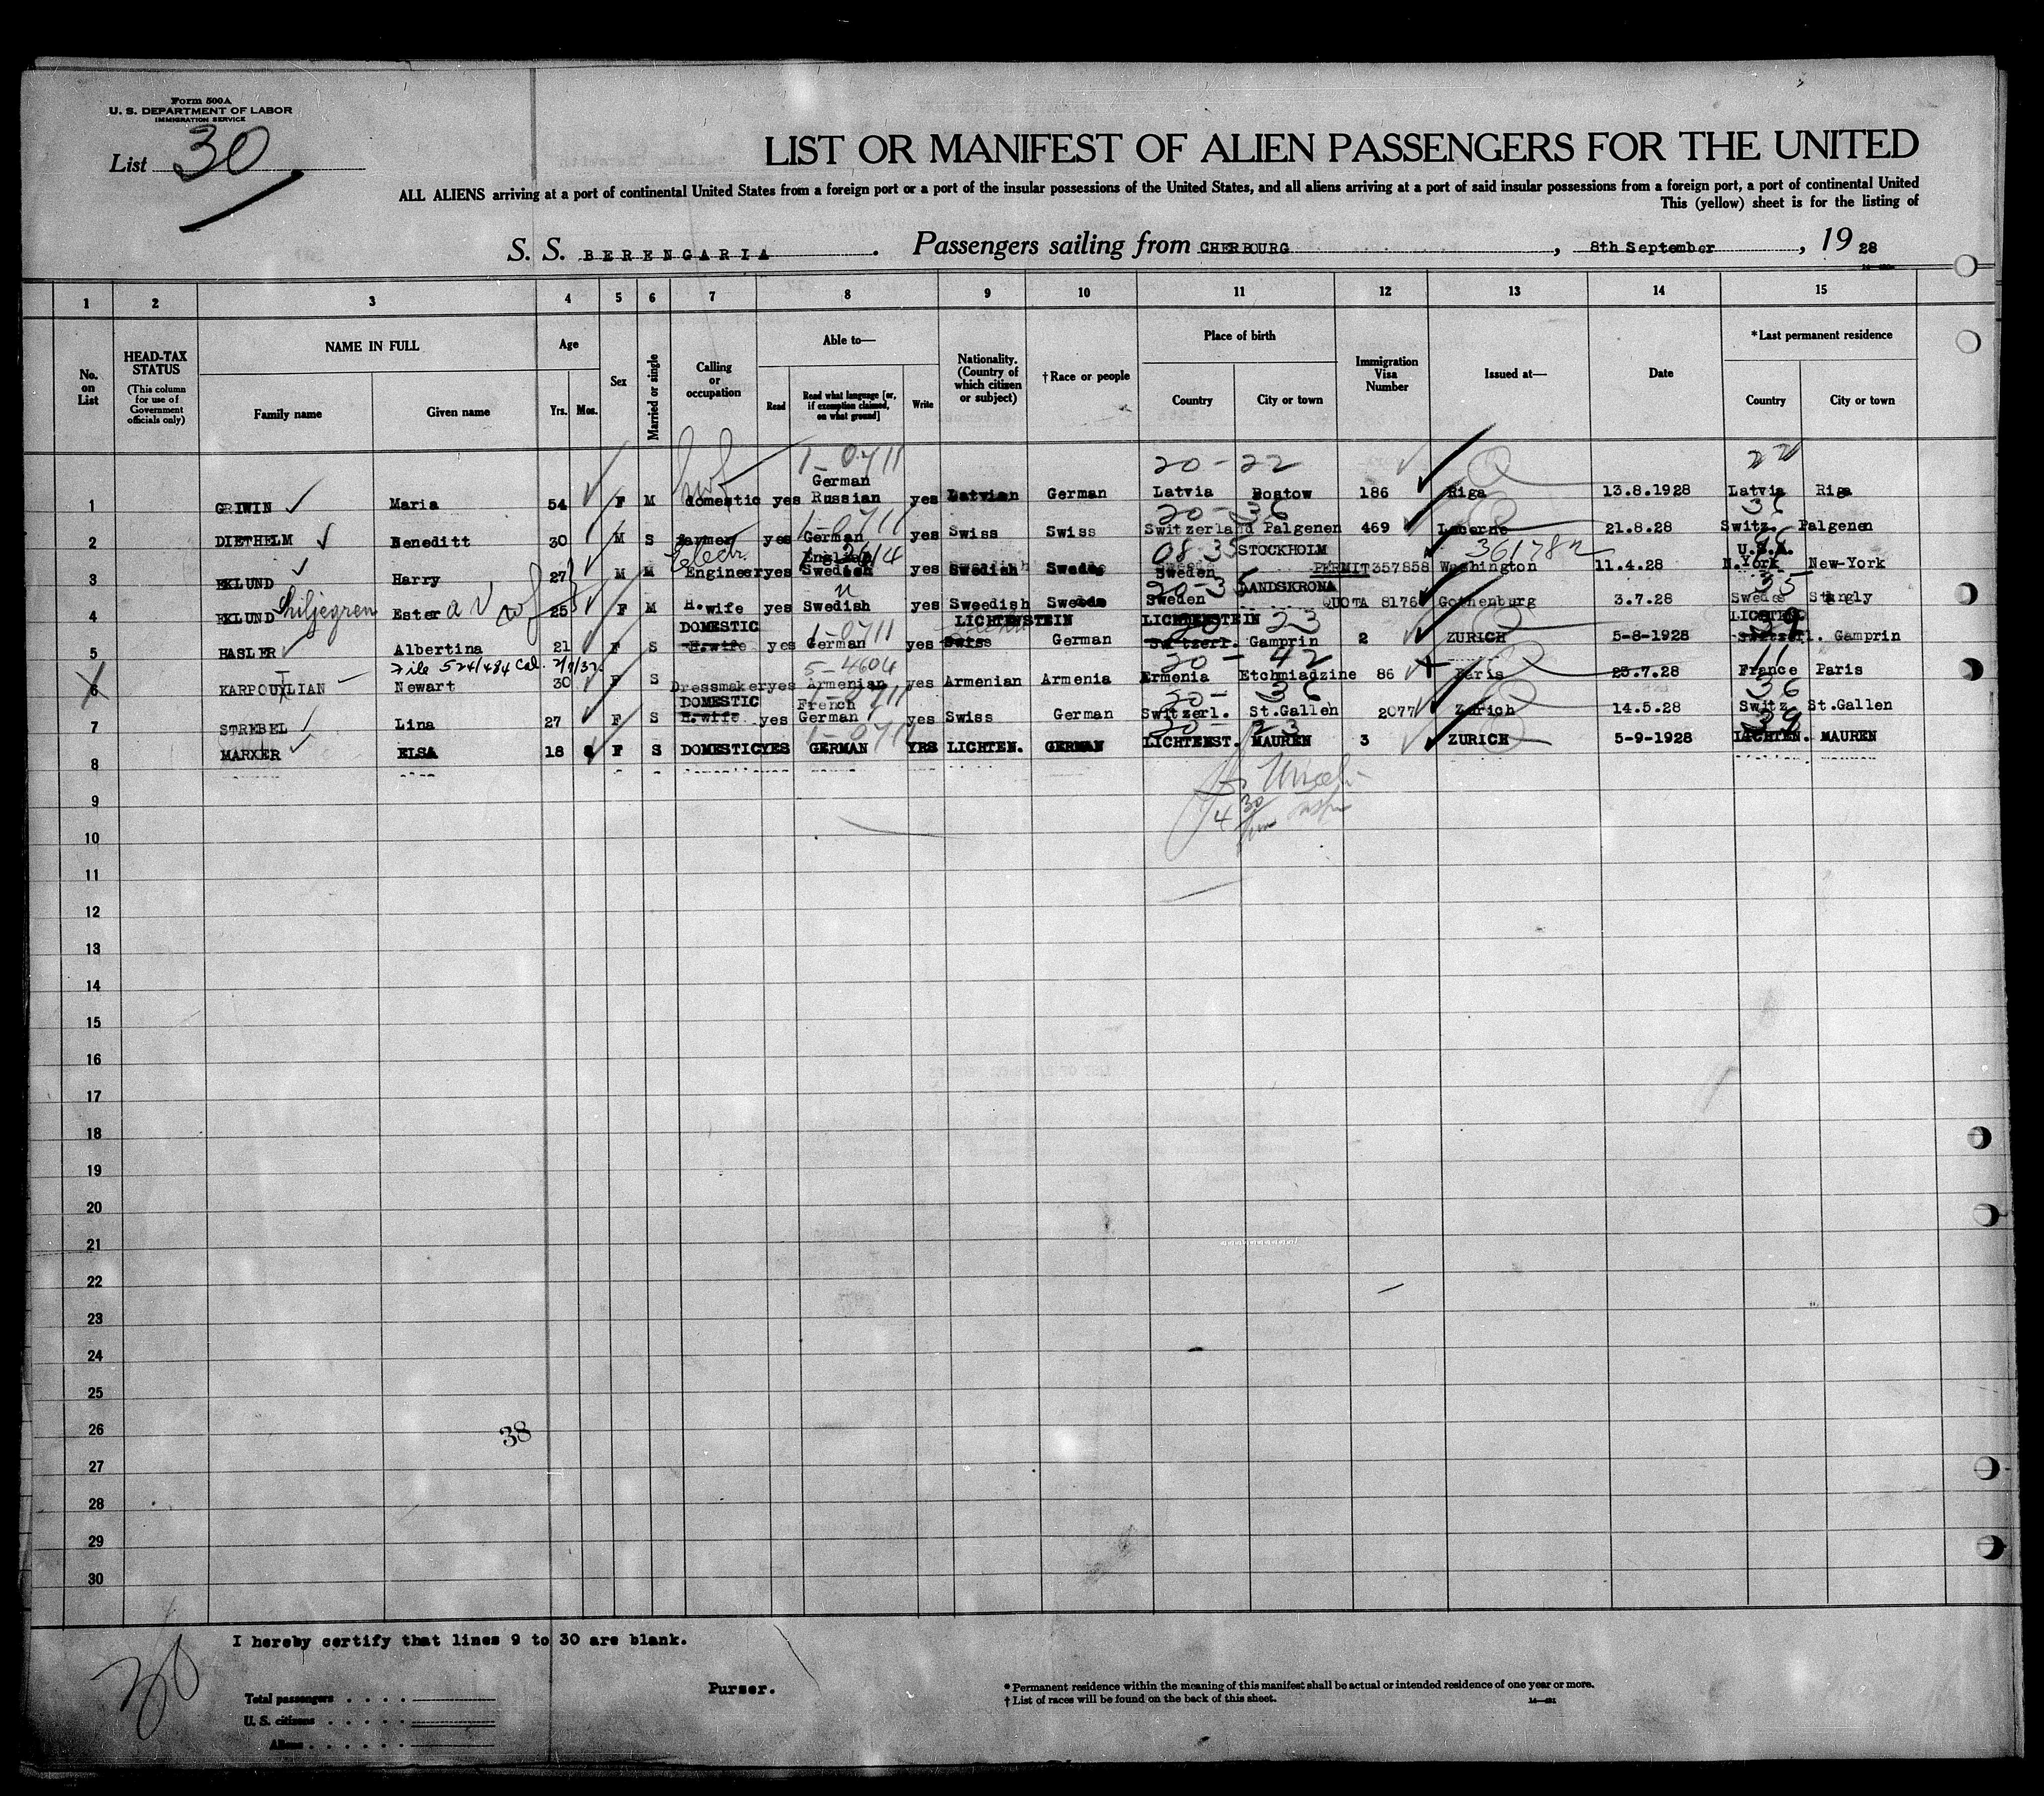 Form 500A
U. S. DEPARTMENT OF LABOR
IMMIGRATION SERVICE
List 30
LIST OR MANIFEST OF ALIEN PASSENGERS FOR THE UNITED
ALL ALIENS arriving at a port of continental United States from a foreign port or a port of the insular possessions of the United States, and all aliens arriving at a port of said insular possessions from a foreign port, a port of continental United
This (yellow) sheet is for the listing of
S. S. BERENGARIA. Passengers sailing from CHERBOURG, 8th September, 1928
1 2 3 4 5 6 7 8 9 10 11 12 13 14 15
No. on List
HEAD-TAX STATUS (This column for use of Government officials only)
NAME IN FULL
Family name Given name
Age
Yrs. Mos.
Sex
Married or single
Calling or occupation
Able to—
Read
Read what language [or, if exemption claimed, on what ground]
Write
Nationality. (Country of which citizen or subject)
† Race or people
Place of birth
Country City or town
Immigration Visa Number
Issued at—
Date
*Last permanent residence
Country City or town
1-0711 20-22 22
German
1 GRIWIN Maria 54 F M domestic yes Russian yes Latvian German Latvia Rostow 186 Riga 13.8.1928 Latvia Riga
1-0711 20-36 36
2 DIETHELM Beneditt 30 M S farmer yes German yes Swiss Swiss Switzerland Palgenen 469 Lucerne 21.8.28 Switz. Palgenen
Electr. English 08 35 STOCKHOLM 361782 U.S.A.
3 EKLUND Harry 27 M M Engineer yes Swedish yes Swedish Swede Sweden PERMIT 357858 Washington 11.4.28 N.York New-York
20-35 LANDSKRONA 35
4 EKLUND Ester 25 F M H.wife yes Swedish yes Sweedish Swede Sweden QUOTA 8176 Gothenburg 3.7.28 Swede
DOMESTIC 1-0711 LICHTENSTEIN LICHTENSTEIN 23
5 HASLER Albertina 21 F S H.wife yes German yes Swiss German Switzerl. Gamprin 2 ZURICH 5-8-1928 Switzerl. Gamprin
5-4604 42 11
6 KARPOUILIAN Newart 30 F S Dressmaker yes Armenian yes Armenian Armenia Ermenia Etchmiadzine 86 Paris 25.7.28 France Paris
DOMESTIC French 36 36
7 STREBEL Lina 27 F S H.wife yes German yes Swiss German Switzerl. St.Gallen 2077 Zurich 14.5.28 Switz St.Gallen
1-0711 23
8 MARXER ELSA 18 F S DOMESTIC YES GERMAN YRS LICHTEN. GERMAN LICHTENST. MAUREN 3 ZURICH 5-9-1928 LICHTEN. MAUREN
9
10
11
12
13
14
15
16
17
18
19
20
21
22
23
24
25
26
38
27
28
29
30
I hereby certify that lines 9 to 30 are blank.
30
Purser.
Total passengers
U. S. citizens
Aliens
* Permanent residence within the meaning of this manifest shall be actual or intended residence of one year or more.
† List of races will be found on the back of this sheet.